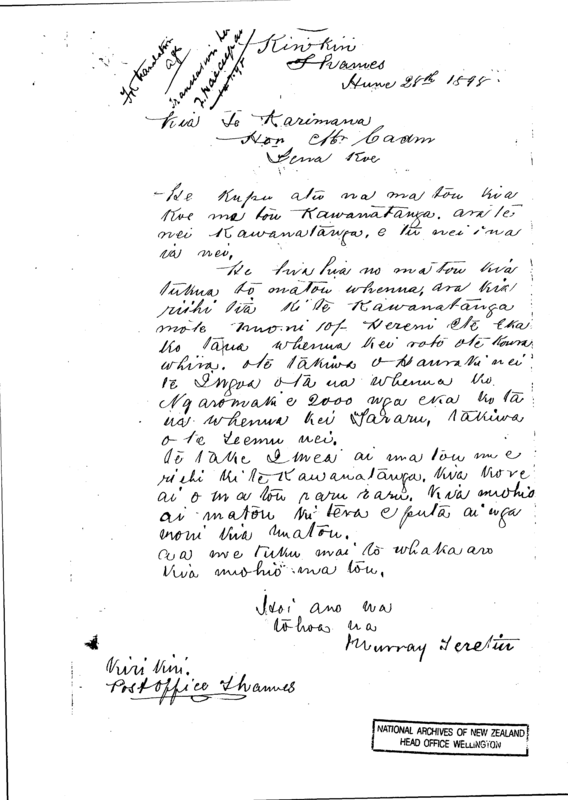 For translation
Kirikiri
Thames
June 28th 1898
Kia Te Karimana
Hon Mr Cadm
Tena Koe
He Kupu atu na ma tou Kia
Koe ma tou Kawanatanga. ara te
nei Kawanatanga, e tu nei i na
ia nei.
He hia hia no ma tou kia
tukua to matou whenua, ara kia
riihi tia Ki te Kawanatanga
mote moni 10/- Hereni ete eka
Ko taua whenua Kei roto ote Koura
whira. ote takiwa o Hauraki nei
te Ingoa o ta ua whenua Ko
Ngaromaki e 2000 nga eka ko ta
ua whenua Kei Tararu, takiwa
o te Teemu nei.
te take I mea ai ma tou me
riihi Ki te Kawanatanga. Kia Kore
ai o ma tou raru raru. Kia mohio
ai matou Ki tera e puta ai nga
moni Kia matou.
aa me tuku mai to whaka aro
Kia mohio ma tou.
Hoi ano na
to hoa na
Murray Teretiu
Kiri Kiri.
Post Office Thames
NATIONAL ARCHIVES OF NEW ZEALAND
HEAD OFFICE WELLINGTON